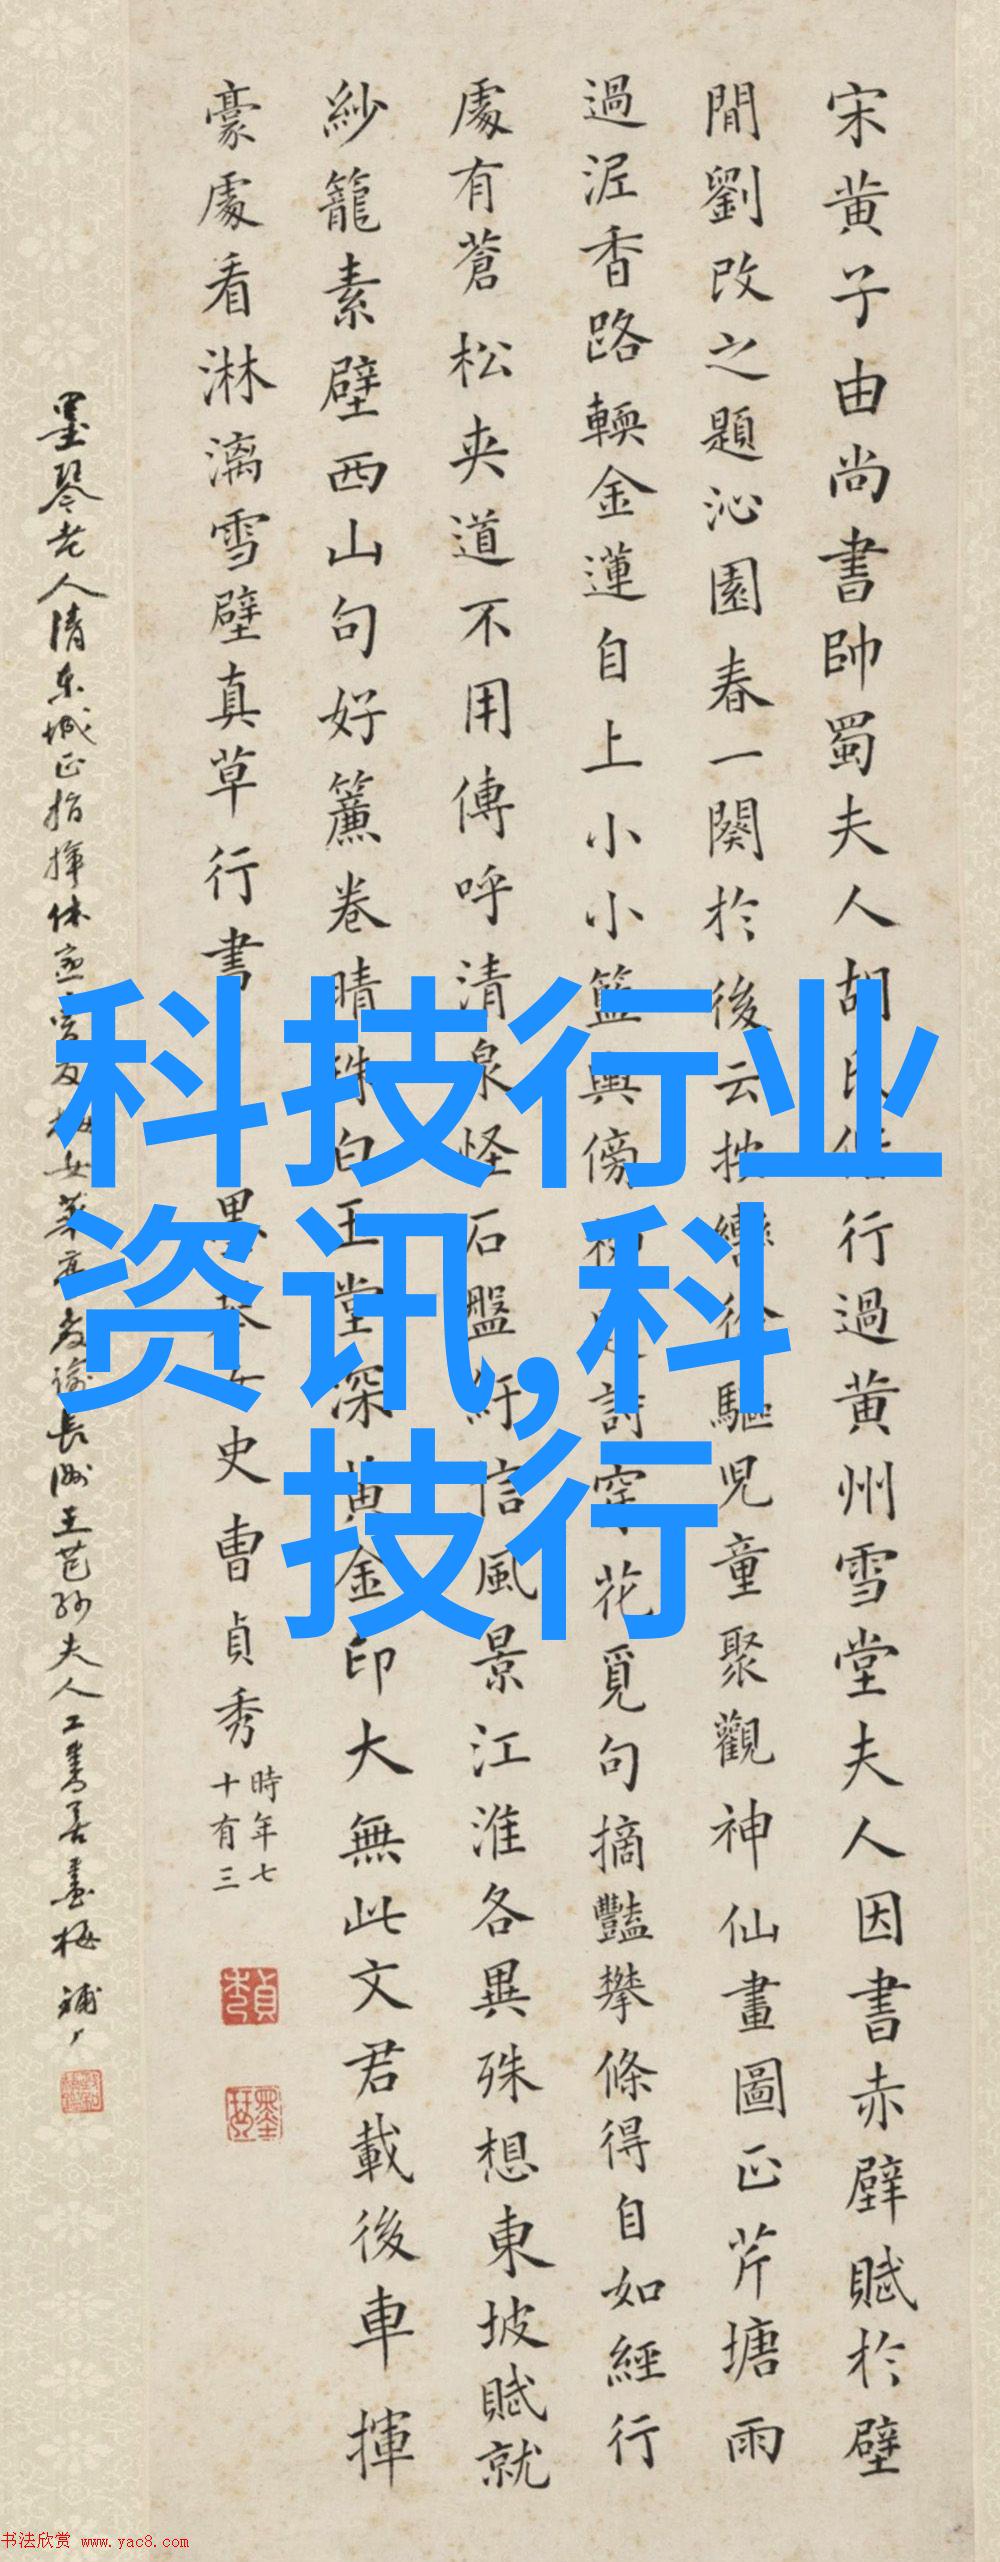 宋黄子由尚書帥蜀夫人胡氏偕行過黄州雪堂夫人因書赤壁賦於壁
間劉改之題沁園春一闋於後云按轡徐驅兒童聚觀神仙畫圖正芹塘雨
過泥香路輭金蓮自上小小籃輿傍柳題詩穿花覓句摘豔攀條得自如經行
處有蒼松夾道不用傳呼清泉怪石盤紆信風景江淮各異殊想東坡賦就
紗籠素壁西山句好簾卷晴珠白玉堂深黄金印大無此文君載後車揮
豪處看淋漓雪壁真草行書
墨琴女史曹貞秀
時年七
十有三
墨琴老人清東城正指揮
長洲王芑孫夫人工書善畫梅
科技行业
资讯,科
技行
书法欣赏 www.yac8.com